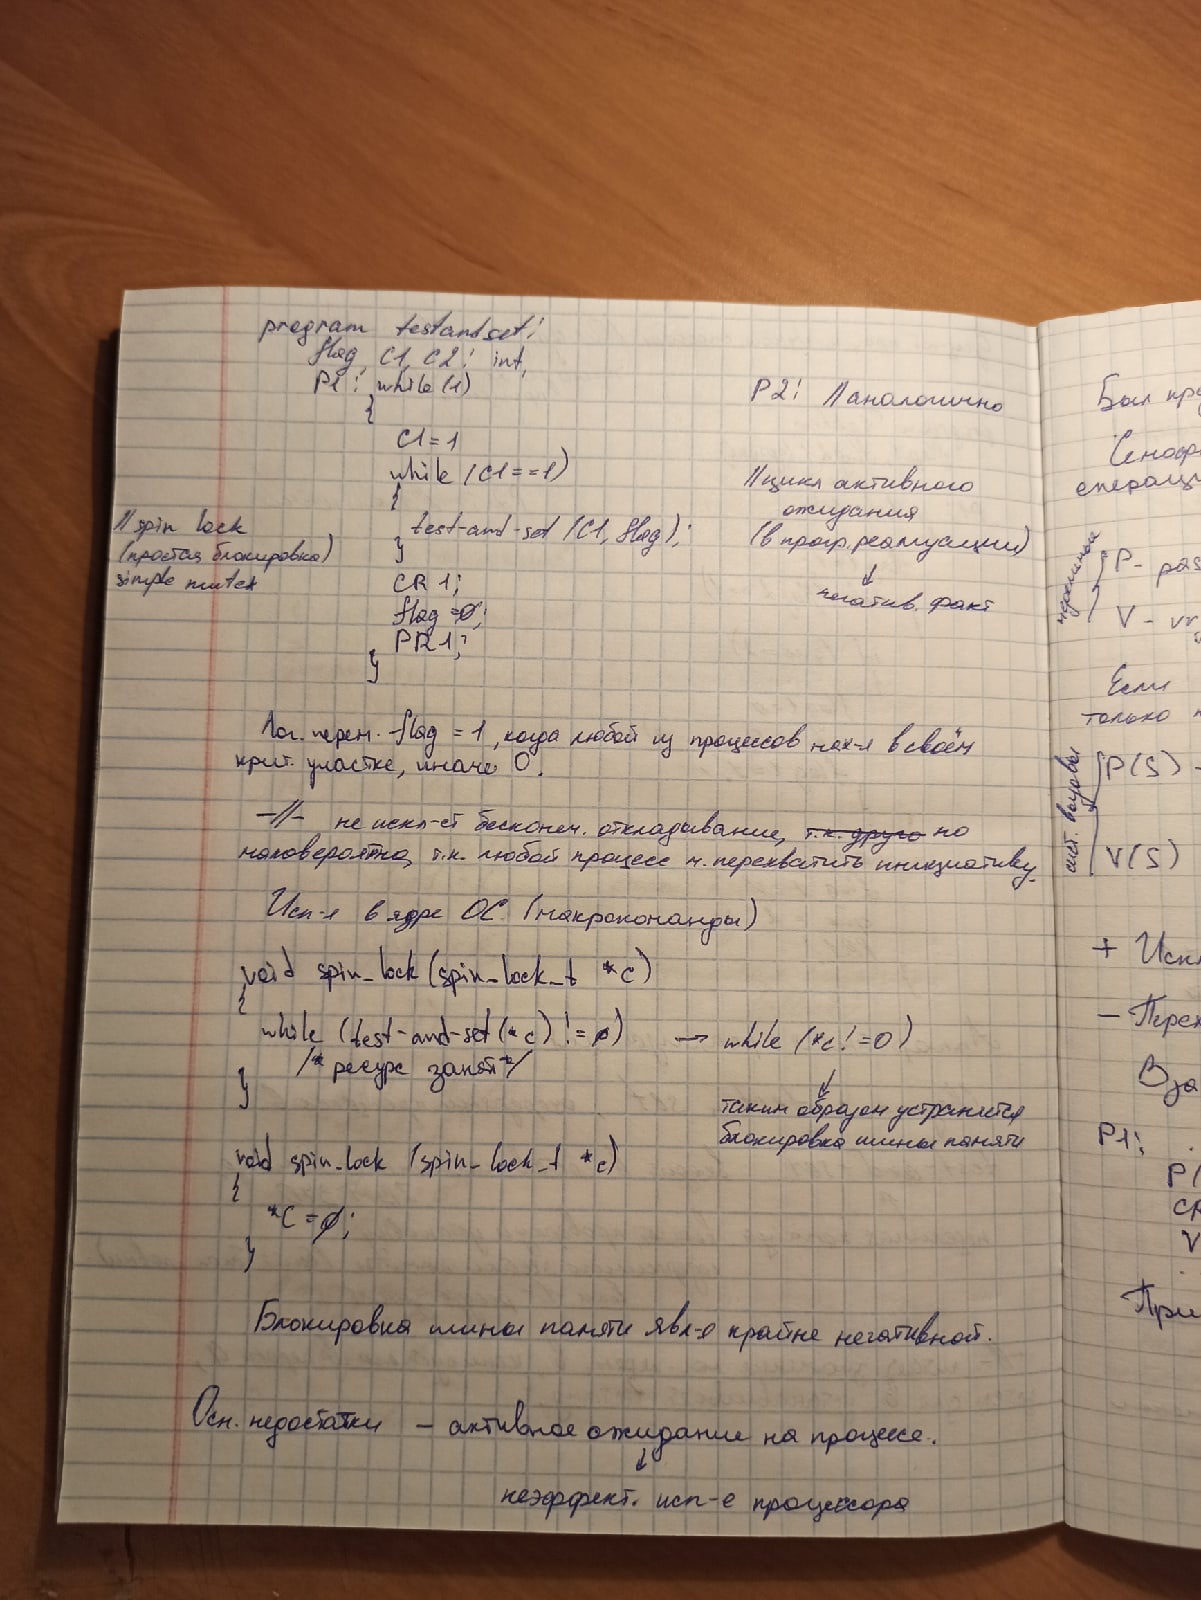 program testandset;
flag, C1, C2: int;
P1: while(1)
{
C1=1
while (C1==1)
{
test-and-set (C1, flag);
}
CR1;
flag =0;
PR1;
}
P2: //аналогично
//цикл активного
ожидания
(в прогр. реализации)
↓
негатив. факт
//spin lock
(простая блокировка)
simple mutex
Лог. перем. flag = 1, когда любой из процессов нах-я в своём
крит. участке, иначе 0.
-//- не искл-ет бесконеч. откладывание, т.к. друго но
маловероятно, т.к. любой процесс м. перехватить инициативу.
Исп-я в ядре ОС (макрокоманды)
void spin_lock(spin_lock_t *c)
{
while (test-and-set(*c) != 0) → while (*c != 0)
/* ресурс занят */
}
↓
таким образом устраняется
блокировка шины памяти
void spin_lock (spin_lock_t *c)
{
*c = 0;
}
Блокировка шины памяти явл-я крайне негативной.
Осн. недостатки – активное ожидание на процессе.
↓
неэффект. исп-е процессора
Был
P-
V-
Если
только
P(S)
V(S)
сист. вызовы
+
-
P1:
P(
CR
V
При